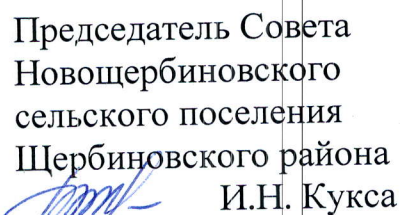 Председатель Совета
Новощербиновского
сельского поселения
Щербиновского района
И.Н. Кукса